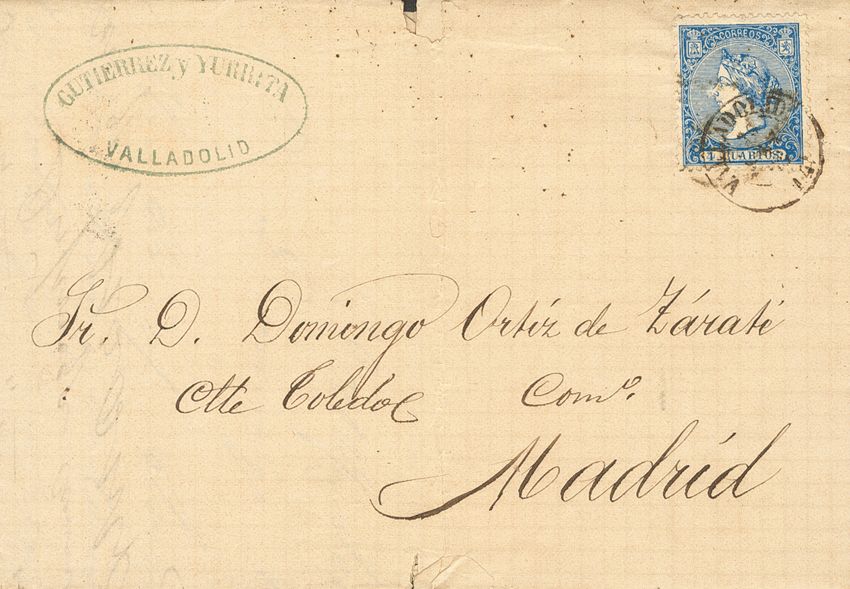 GUTIERREZ y YURRITA
VALLADOLID
CORREOS
4 CUARTOS
VALLADOLID
Sr. D. Domingo Ortíz de Zárate
Clle Toledo Com.º
Madríd